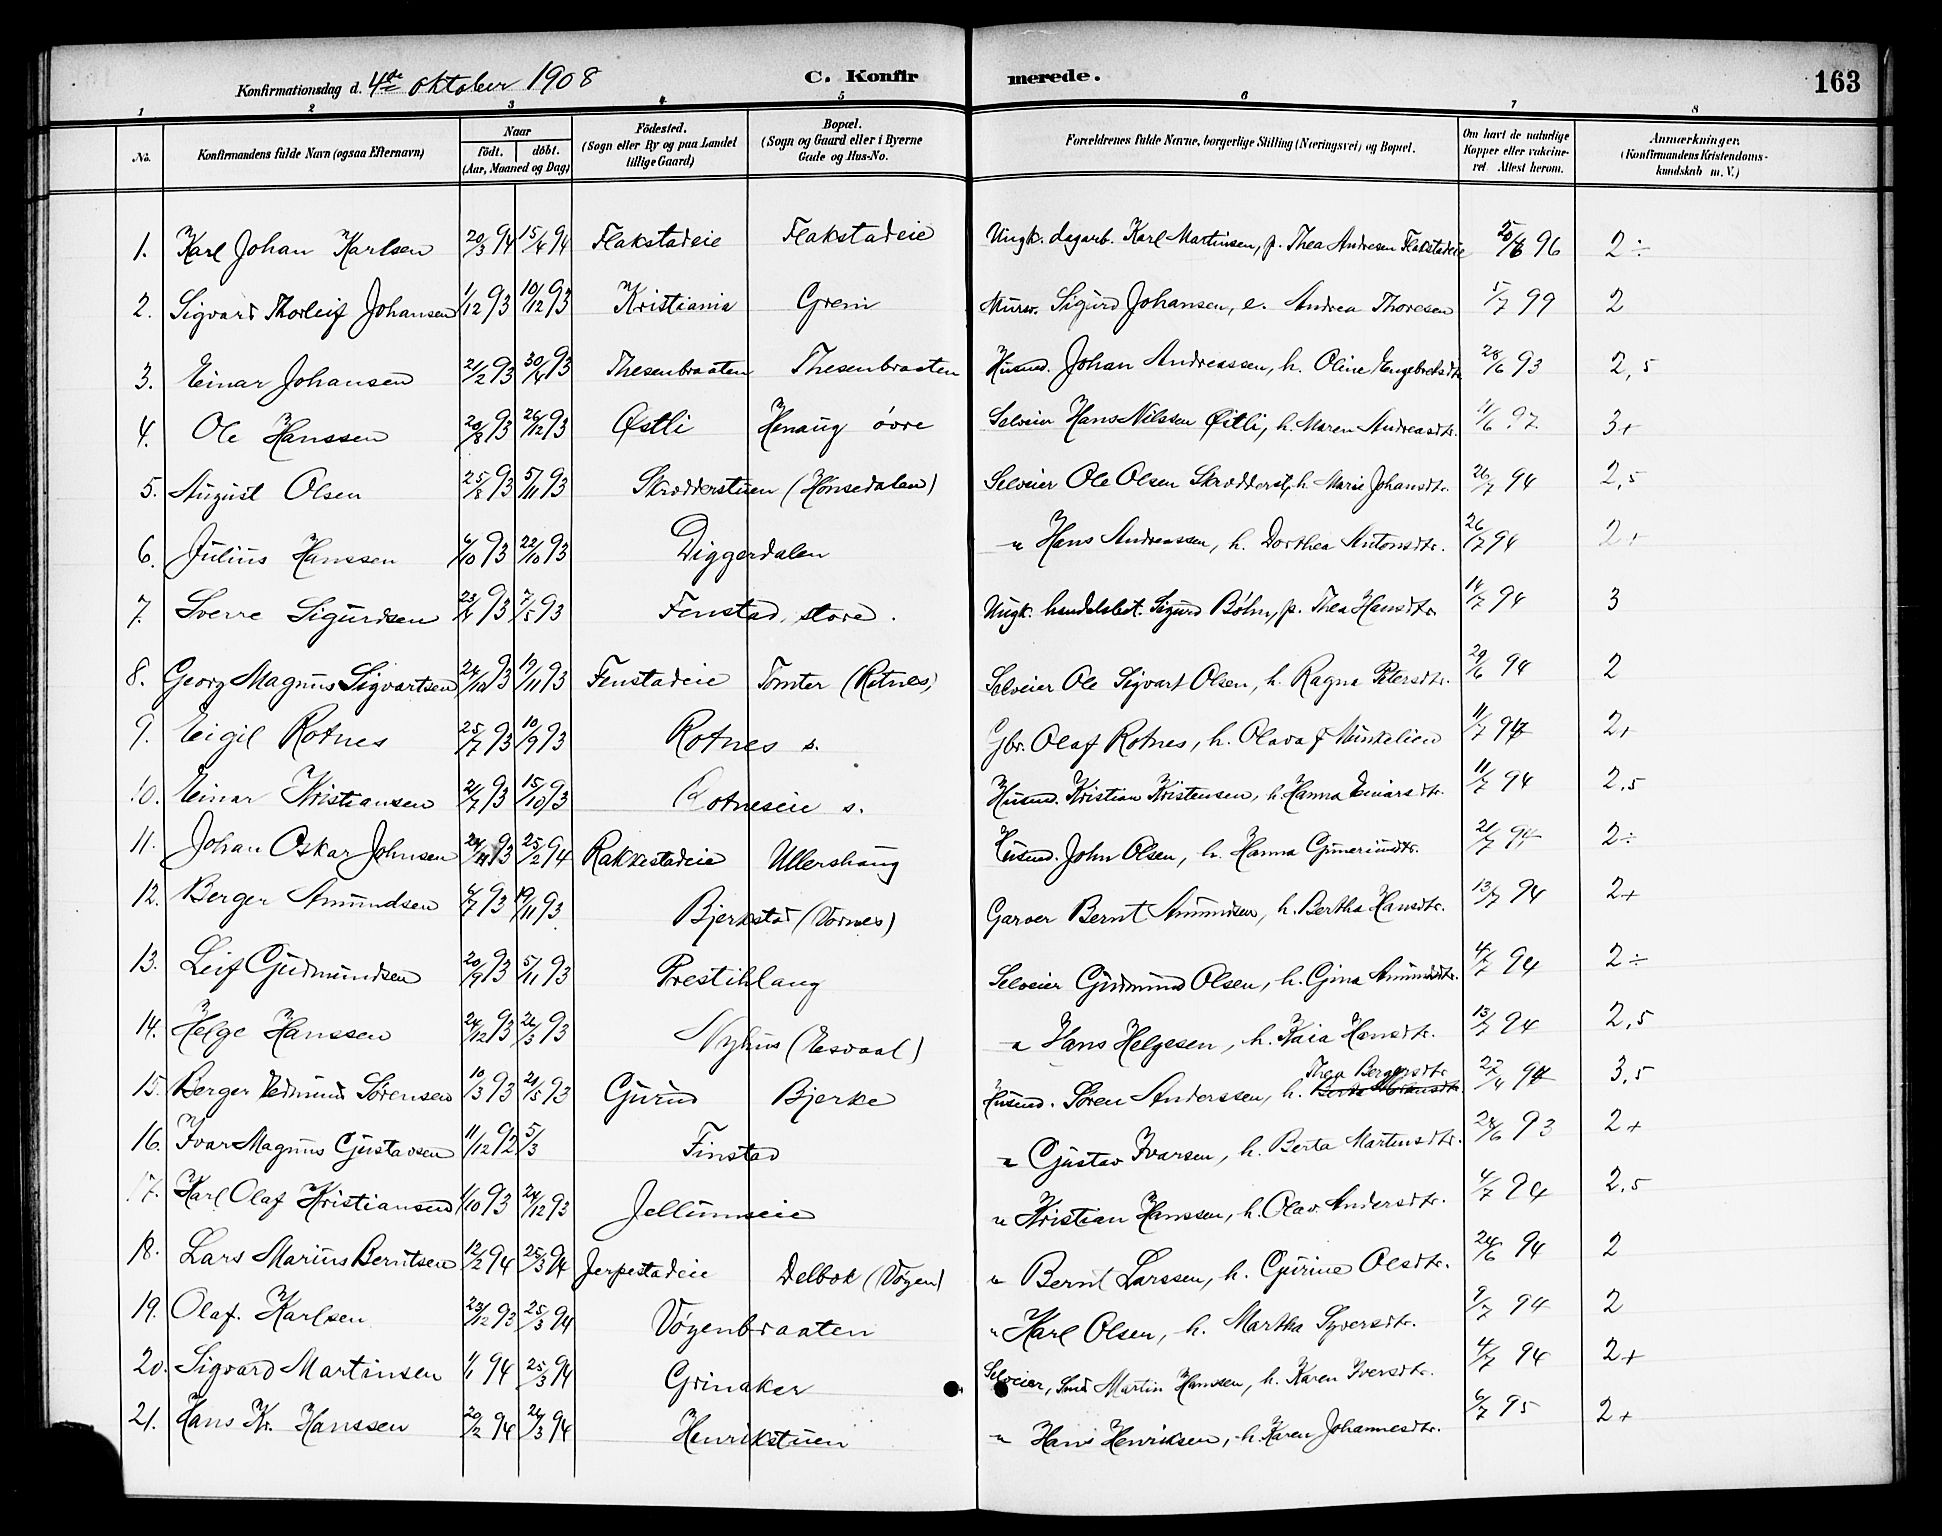 Konfirmationsdag d. 4de oktober 1908 C. Konfir merede. 163
1 2 3 4 5 6 7 8
No. Konfirmandens fulde Navn (ogsaa Efternavn) Naar født. døbt. (Aar, Maaned og Dag) Fødested. (Sogn eller By og paa Landet tillige Gaard) Bopæl. (Sogn og Gaard eller i Byerne Gade og Hus-No. Forældrenes fulde Navne, borgerlige Stilling (Næringsvei) og Bopæl. Om havt de naturlige Kopper eller vakcineret Attest herom. Anmærkninger. (Konfirmandens Kristendomskundskab m. V.)
1. Karl Johan Karlsen 20/3 94 15/4 94 Flakstadeie Flakstadeie Ungk. dagarb. Karl Martinsen, p. Thea Andresen Flakstadeie 96 2÷
2. Sigvard Thorleif Johansen 1/12 93 10/12 93 Kristiania Greni Murer. Sigurd Johansen, e. Andrea Thoresen 5/7 99 2
3. Einar Johansen 21/2 93 30/4 93 Thesenbraaten Thesenbraaten Husmd. Johan Andreassen, h. Oline Engebretsdtr. 28/6 93 2,5
4. Ole Hanssen 20/8 93 26/12 93 Østli Henaug øvre Selveier Hans Nilssen Østli, h. Maren Andreasdtr. 11/6 97 3+
5. August Olsen 25/8 93 5/11 93 Skrædderstuen (Hønsedalen) Selveier Ole Olsen Skrædderst, h. Marie Johansdtr. 26/7 94 2,5
6. Julius Hanssen 6/10 93 22/10 93 Diggerdalen " Hans Andreassen, h. Dorthea Antonsdtr. 26/7 94 2+
7. Sverre Sigurdsen 23/4 93 7/5 93 Fenstad, store. Ungk. handelsbet. Sigurd Bøhn, p. Thea Hansdtr. 14/7 94 3
8. Georg Magnus Sigvartsen 24/10 93 19/11 93 Fenstadeie Tomter (Rotnes) Selveier Ole Sigvart Olsen, h. Ragna Petersdtr. 29/6 94 2
9. Eigil Rotnes 25/7 93 10/9 93 Rotnes s. Gbr. Olaf Rotnes, h. Olava f Munkelien 11/7 94 2+
10. Einar Kristiansen 21/7 93 15/10 93 Rotneseie s. Husmd. Kristian Kristensen, h. Hanna Einarsdtr. 11/7 94 2,5
11. Johan Oskar Johnsen 24/11 93 25/2 94 Rakkestadeie Ullershaug Husmd. John Olsen, h. Hanna Guneriusdtr. 21/7 94 2÷
12. Berger Amundsen 6/7 93 19/11 93 Bjerkstad (Vornes) Garver Bernt Amundsen, h. Bertha Hansdtr. 13/7 94 2+
13. Leif Gudmundsen 20/9 93 5/11 93 Prestihlaug Selveier Gudmund Olsen, h. Gina Amundsdtr. 4/7 94 2÷
14. Helge Hanssen 24/12 93 26/3 93 Nyhus (Esvaal) " Hans Helgesen, h. Kaia Hansdtr. 13/7 94 2,5
15. Berger Edmund Sørensen 10/3 93 21/5 93 Gurud Bjerke Husmd. Søren Anderssen, h. Thea Bergersdtr. 27/4 94 3,5
16. Ivar Magnus Gustavsen 11/12 92 5/3 Finstad " Gustav Ivarsen, h. Berta Martinsdtr. 28/6 93 2+
17. Karl Olaf Kristiansen 1/10 93 24/12 93 Jellumseie " Kristian Hanssen, h. Olav Andersdtr. 4/7 94 2,5
18. Lars Marius Berntsen 12/2 94 25/3 94 Jerpestadeie Delbok (Vøyen) " Bernt Larssen, h. Gurine Olsdtr. 24/6 94 2
19. Olaf. Karlsen 23/12 93 25/3 94 Vøyenbraaten " Karl Olsen, h. Martha Syversdtr. 9/7 94 2
20. Sigvard Martinsen 1/1 94 25/3 94 Grinaker Selveier, Smed Martin Hanssen, h. Karen Iversdtr. 4/7 94 2+
21. Hans Kr. Hanssen 20/2 94 26/3 94 Henrikstuen " Hans Henriksen, h. Karen Johannesdtr. 6/7 95 2+